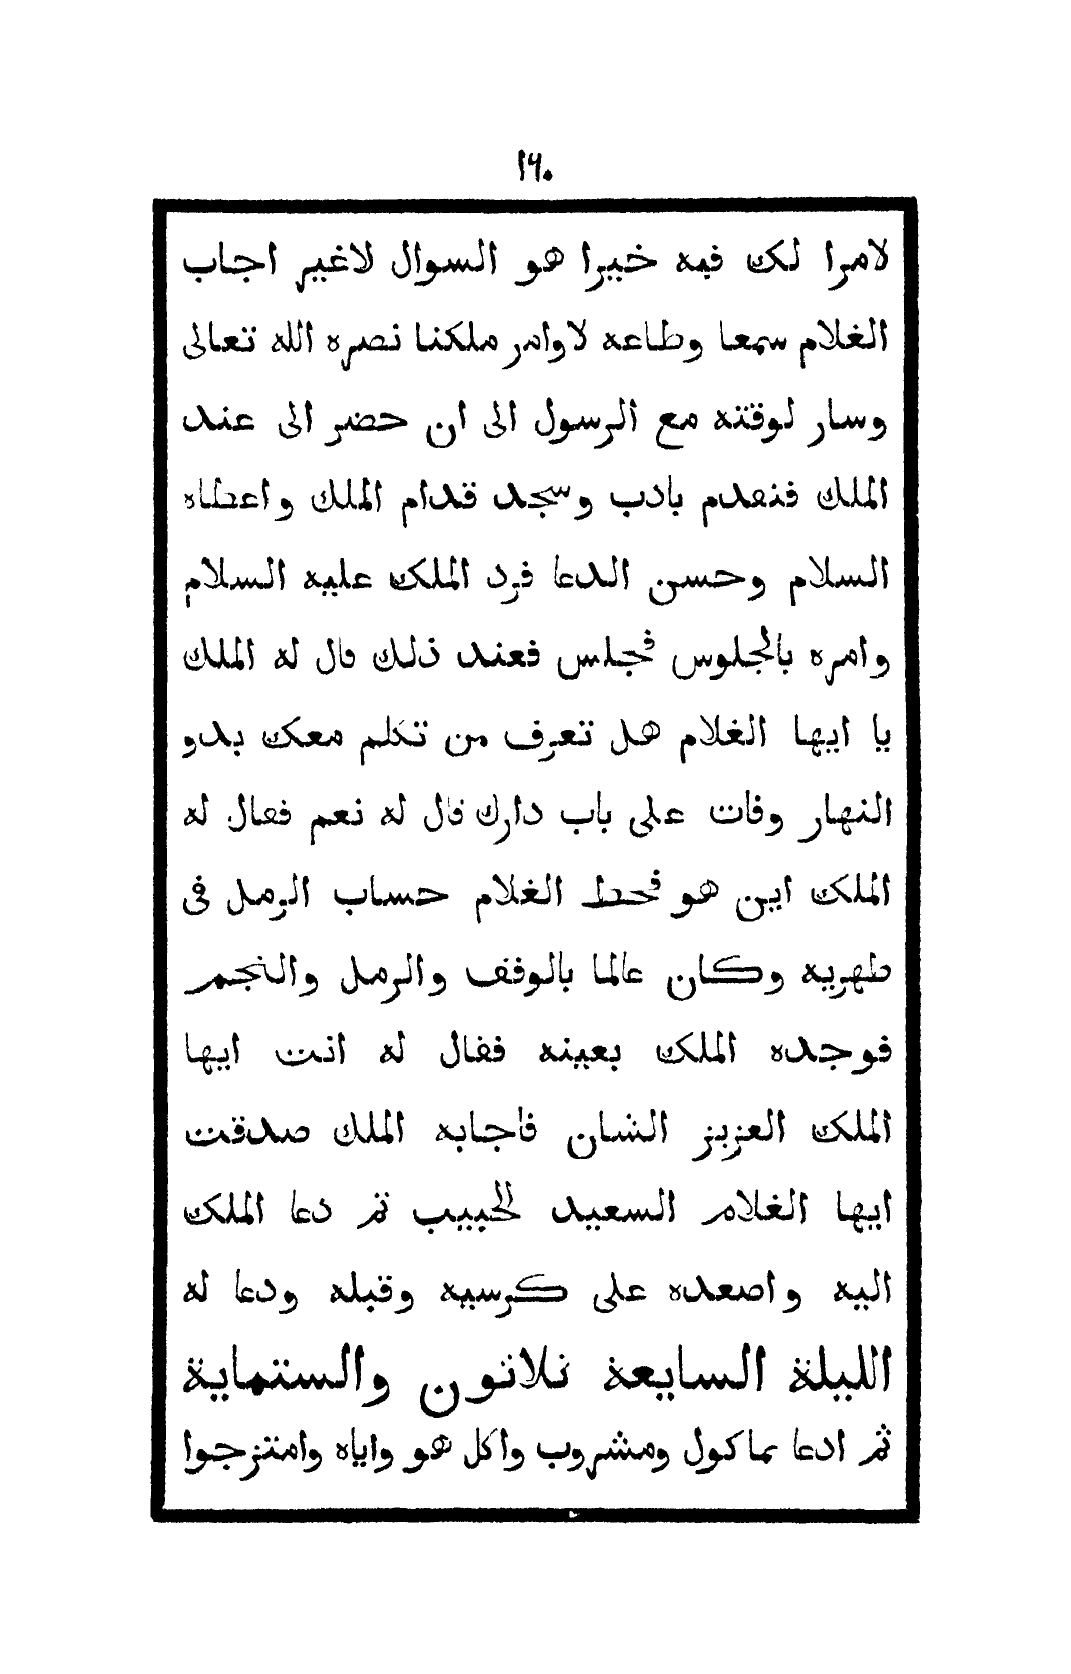 ١٦٠
لامرا لك فيه خيرا هو السوال لاغير اجاب
الغلام سمعا وطاعه لاوامر ملكنا نصره الله تعالى
وسار لوقته مع الرسول الى ان حضر الى عند
الملك فتقدم بادب وسجد قدام الملك واعطاه
السلام وحسن الدعا فرد الملك عليه السلام
وامره بالجلوس فجلس فعند ذلك قال له الملك
يا ايها الغلام هل تعرف من تكلم معك بدو
النهار وفات على باب دارك قال له نعم فقال له
الملك اين هو فحط الغلام حساب الرمل فى
طهريه وكان عالما بالوفف والرمل والنجم
فوجده الملك بعينه فقال له انت ايها
الملك العزيز الشان فاجابه الملك صدقت
ايها الغلام السعيد الحبيب ثم دعا الملك
اليه واصعده على كرسيه وقبله ودعا له
الليلة السايعة تلاتون والستماية
ثم ادعا بماكول ومشروب واكل هو واياه وامتزجوا